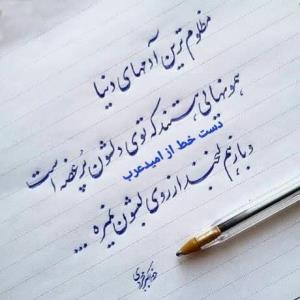 مظلوم ترین آدمهای دنیا
همونهایی هستند که توی دلشون پُر غصه است
دست خط از امیدعرب
و بازم لبخند از روی لبشون نمیره ...